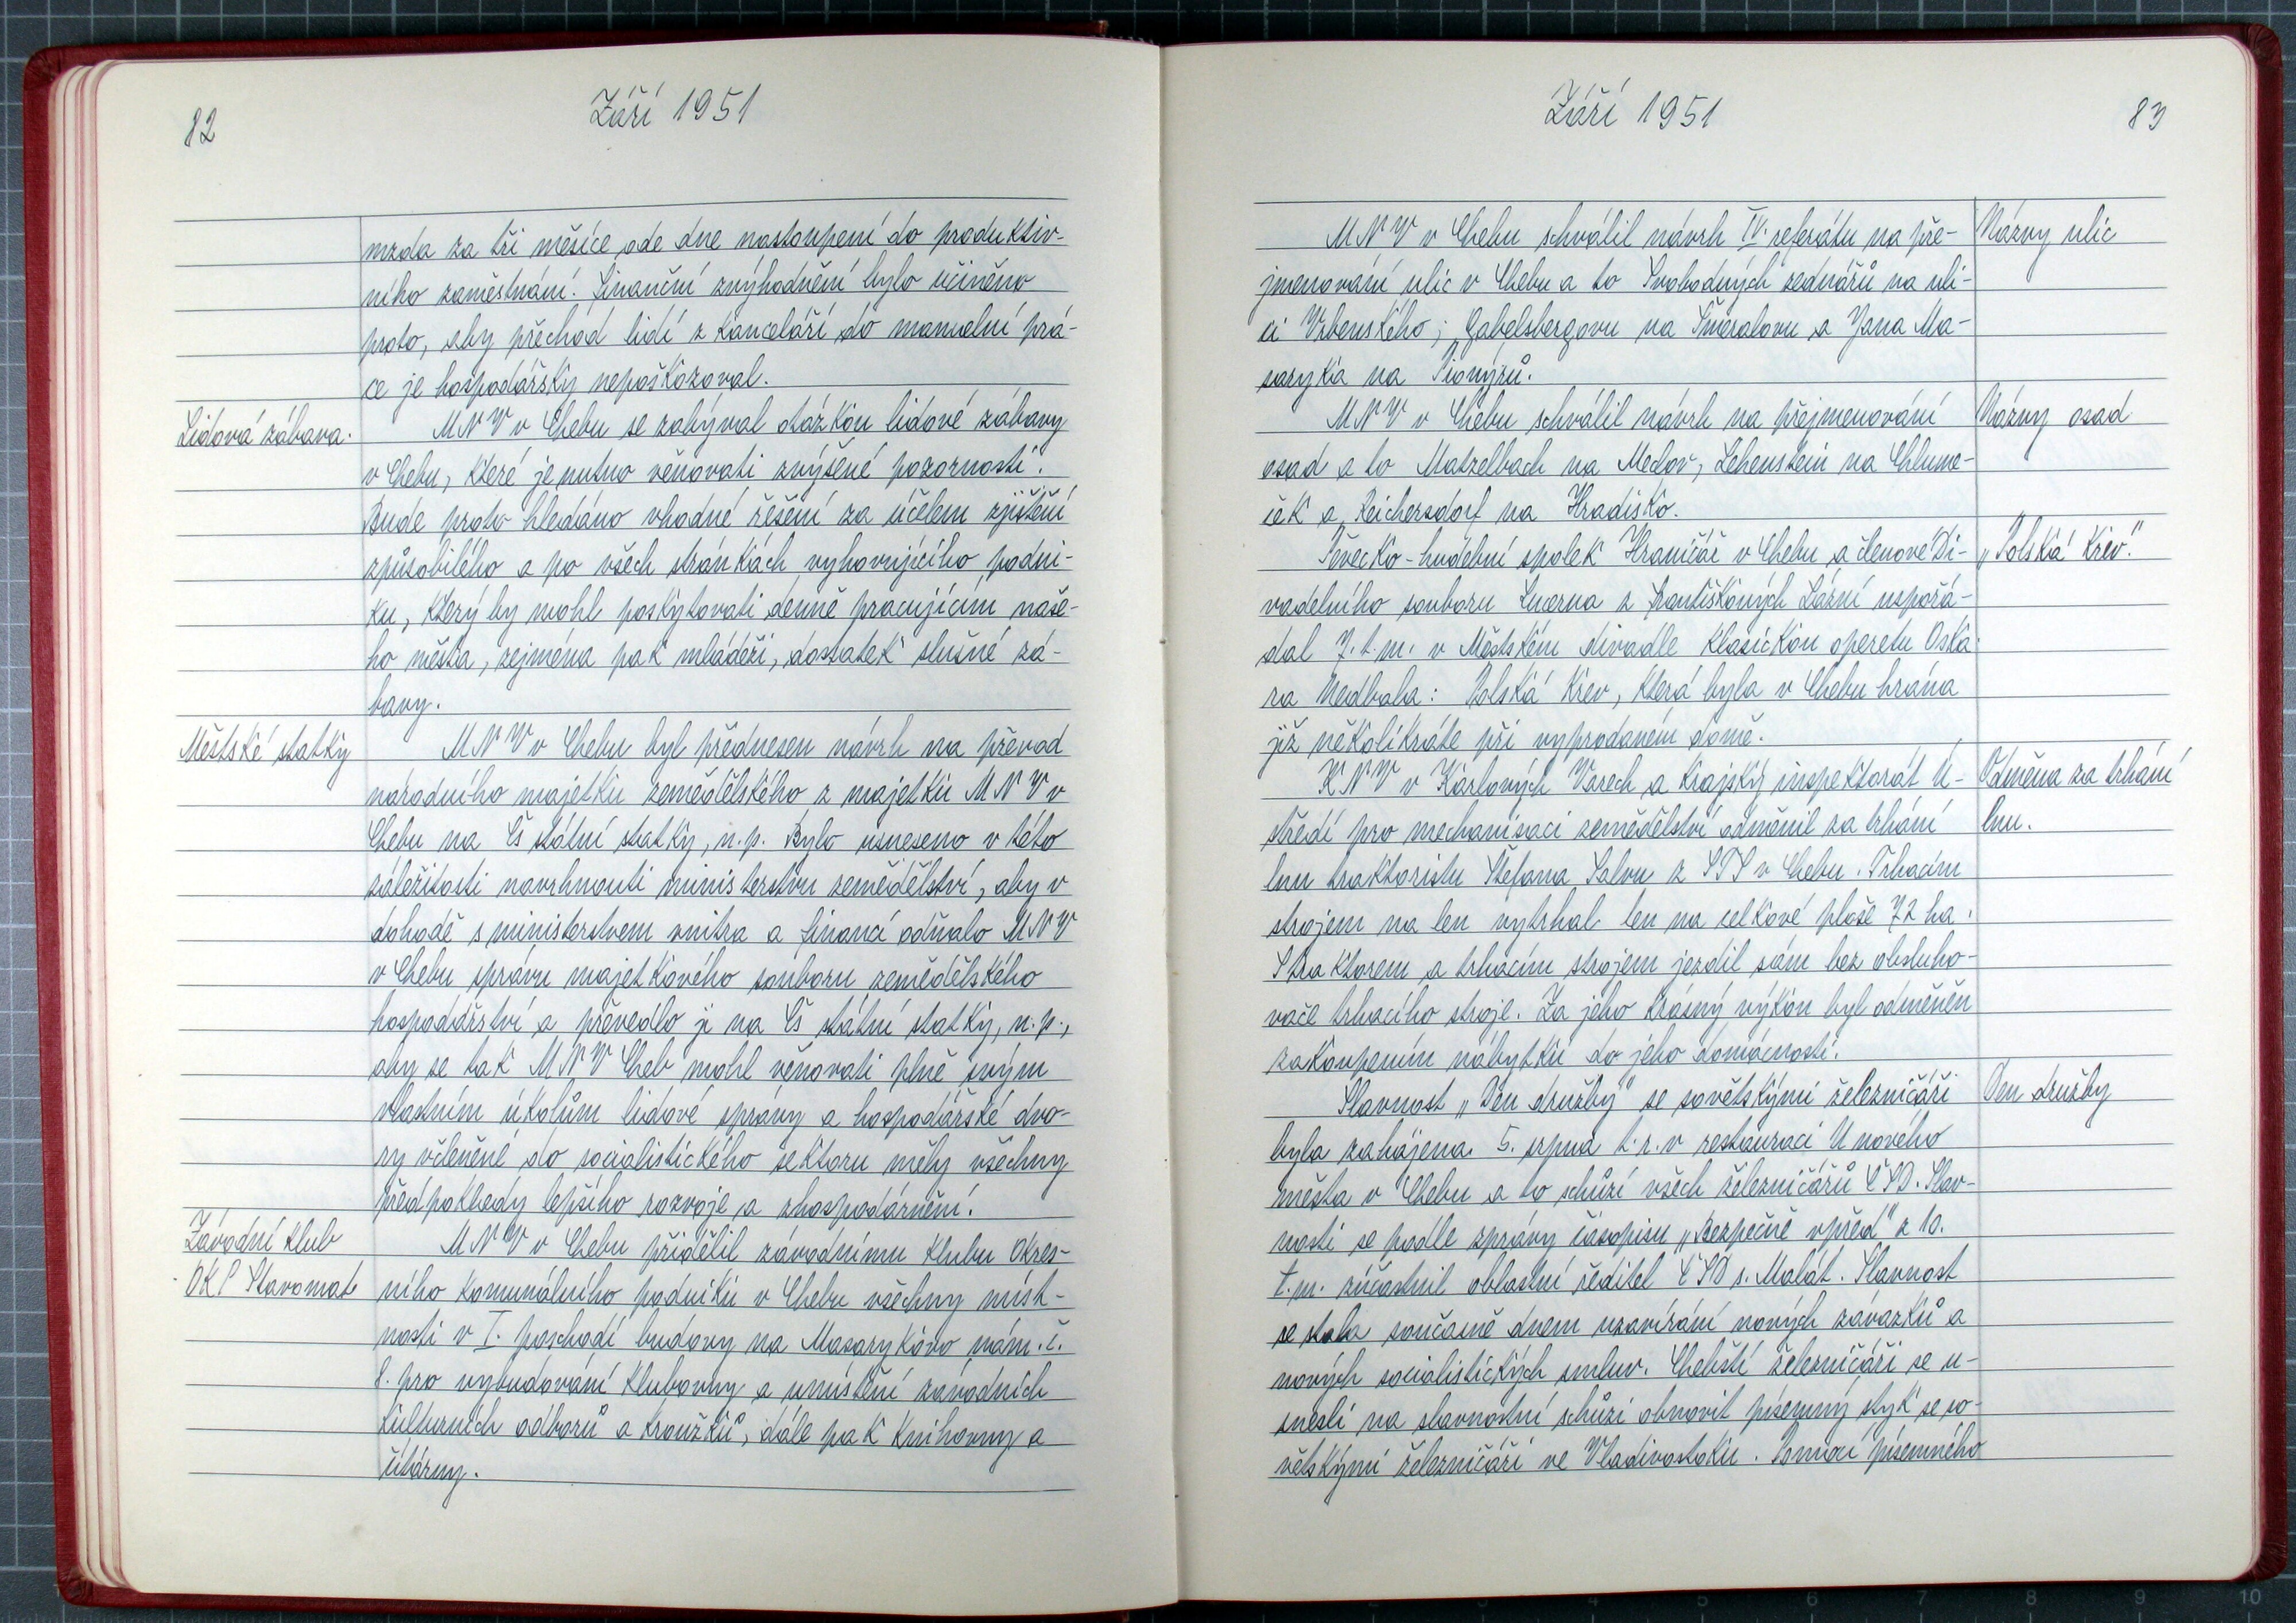 82
Září 1951
mzda za tři měsíce ode dne nastoupení do produktiv-
ního zaměstnání. Finanční zvýhodnění bylo učiněno
proto, aby přechod lidí z kanceláří do manuelní prá-
ce je hospodářsky nepoškozoval.
Lidová zábava.
MNV v Chebu se zabýval otázkou lidové zábavy
v Chebu, které je nutno věnovati zvýšené pozornosti.
Bude proto hledáno vhodné řešení za účelem zjištění
způsobilého a po všech stránkách vyhovujícího podni-
ku, který by mohl poskytovati denně pracujícím naše-
ho města, zejména pak mládeži, dostatek slušné zá-
bavy.
Městské statky
MNV v Chebu byl přednesen návrh na převod
národního majetku zemědělského z majetku MNV v
Chebu na Čs státní statky, n.p. Bylo usneseno v této
záležitosti navrhnouti ministerstvu zemědělství, aby v
dohodě s ministerstvem vnitra a financí odňalo MNV
v Chebu správu majetkového souboru zemědělského
hospodářství a převedlo ji na Čs státní statky, n.p.,
aby se tak MNV Cheb mohl věnovati plně svým
vlastním úkolům lidové správy a hospodářské dvo-
ry včleněné do socialistického sektoru měly všechny
předpoklady lepšího rozvoje a zhospodárnění.
Závodní klub
OKP Stavomat
MNV v Chebu přidělil závodnímu klubu Okres-
ního komunálního podniku v Chebu všechny míst-
nosti v I. poschodí budovy na Masarykovo nám. č.
8. pro vybudování klubovny a umístění závodních
kulturních odborů a kroužků, dále pak knihovny a
čítárny.
Září 1951
83
MNV v Chebu schválil návrh IV. referátu na pře-
jmenování ulic v Chebu a to Svobodných zednářů na uli-
ci Vrbenského; Gabelsbergovu na Šmeralovu a Jana Ma-
saryka na Pionýrů.
Názvy ulic
MNV v Chebu schválil návrh na přejmenování
osad a to Matzelbach na Medov, Lehenstein na Chlume-
ček a Reichersdorf na Hradisko.
Názvy osad
Pěvecko-hudební spolek Hraničář v Chebu a členové Di-
vadelního souboru Lucerna z Františkových Lázní uspořá-
dal 7. t. m. v Městském divadle klasickou operetu Oska-
ra Nedbala: Polská krev, která byla v Chebu hrána
již několikráte při vyprodaném domě.
„Polská krev."
KNV v Karlových Varech a krajský inspektorát Ú-
středí pro mechanisaci zemědělství odměnil za trhání
lnu traktoristu Štefana Salvu z STS v Chebu. Trhacím
strojem na len vytrhal len na celkové ploše 72 ha.
S traktorem a trhacím strojem jezdil sám bez obsluho-
vače trhacího stroje. Za jeho krásný výkon byl odměněn
zakoupením nábytku do jeho domácnosti.
Odměna za trhání
lnu.
Slavnost „Den družby" se sovětskými železničáři
byla zahájena 5. srpna t. r. v restauraci U nového
města v Chebu a to schůzí všech železničářů ČSD. Slav-
nosti se podle zprávy časopisu „Bezpečně vpřed" z 10.
t. m. zúčastnil oblastní ředitel ČSD s. Malát. Slavnost
se stala současně dnem uzavírání nových závazků a
nových socialistických smluv. Chebští železničáři se u-
snesli na slavnostní schůzi obnovit písemný styk se so-
větskými železničáři ve Vladivostoku. Pomocí písemného
Den družby